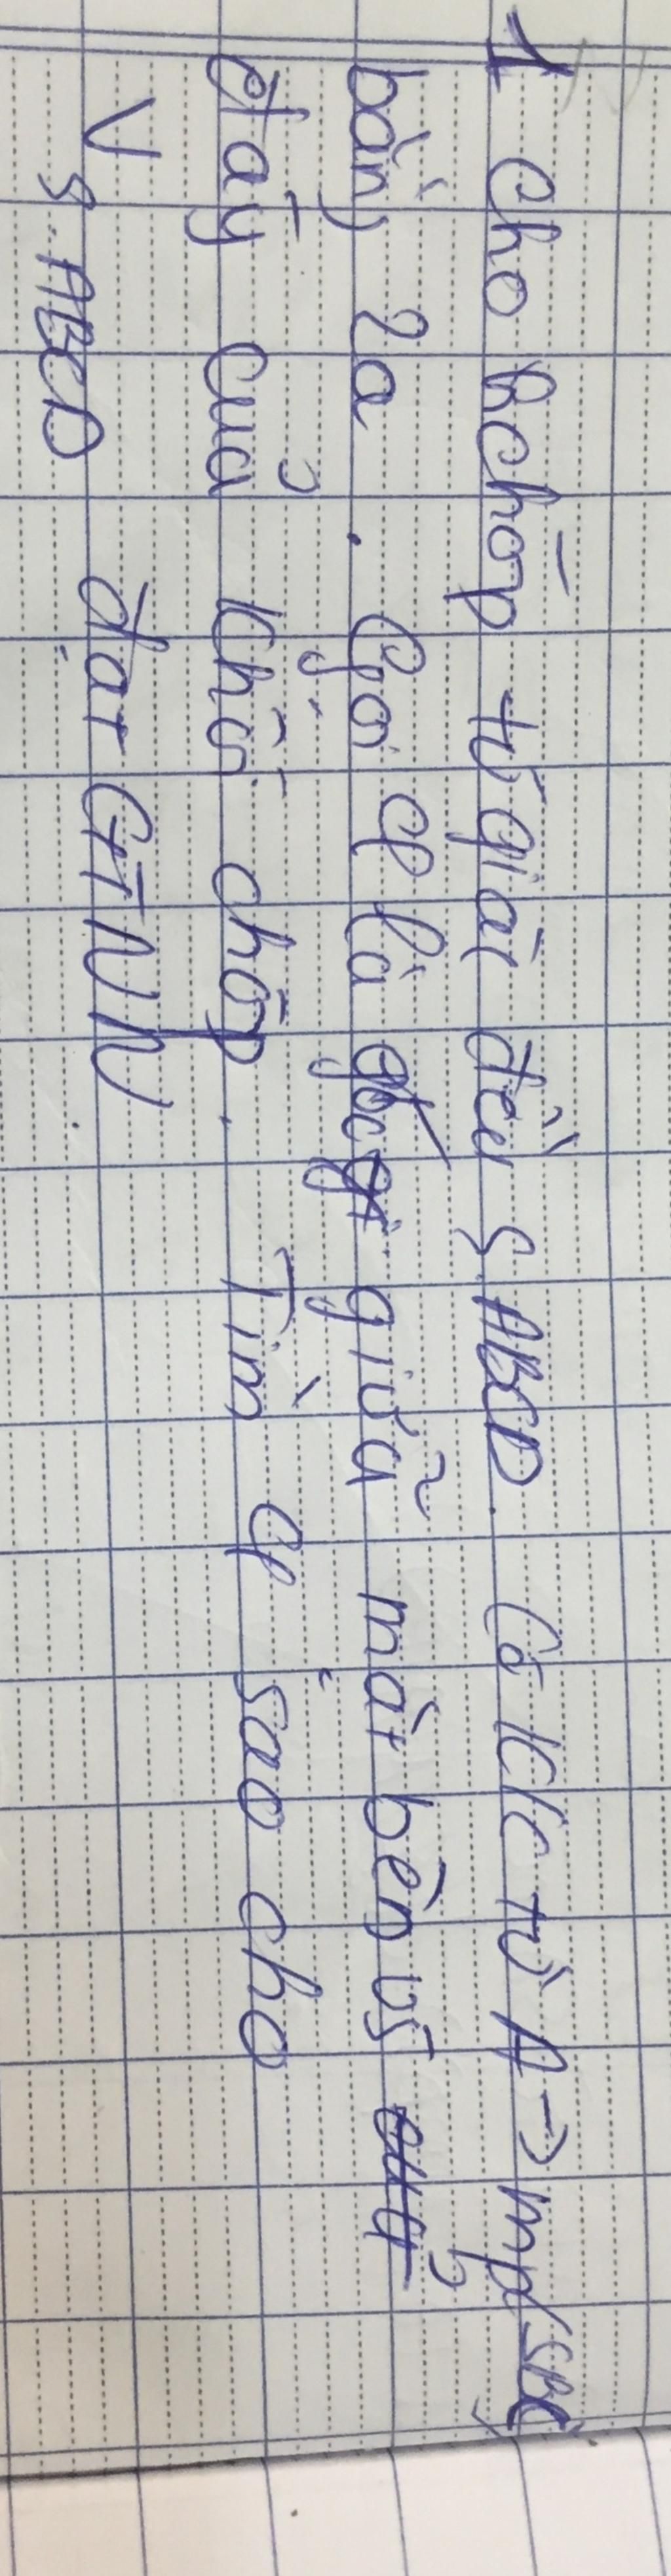 1 Cho hchóp tứ giác đều S.ABCD. Có k/c từ A → mp (SBC)
bằng 2a. Gọi φ là góc giữa mặt bên vs
đáy của khối chóp. Tìm φ sao cho
V S.ABCD đạt GTNN